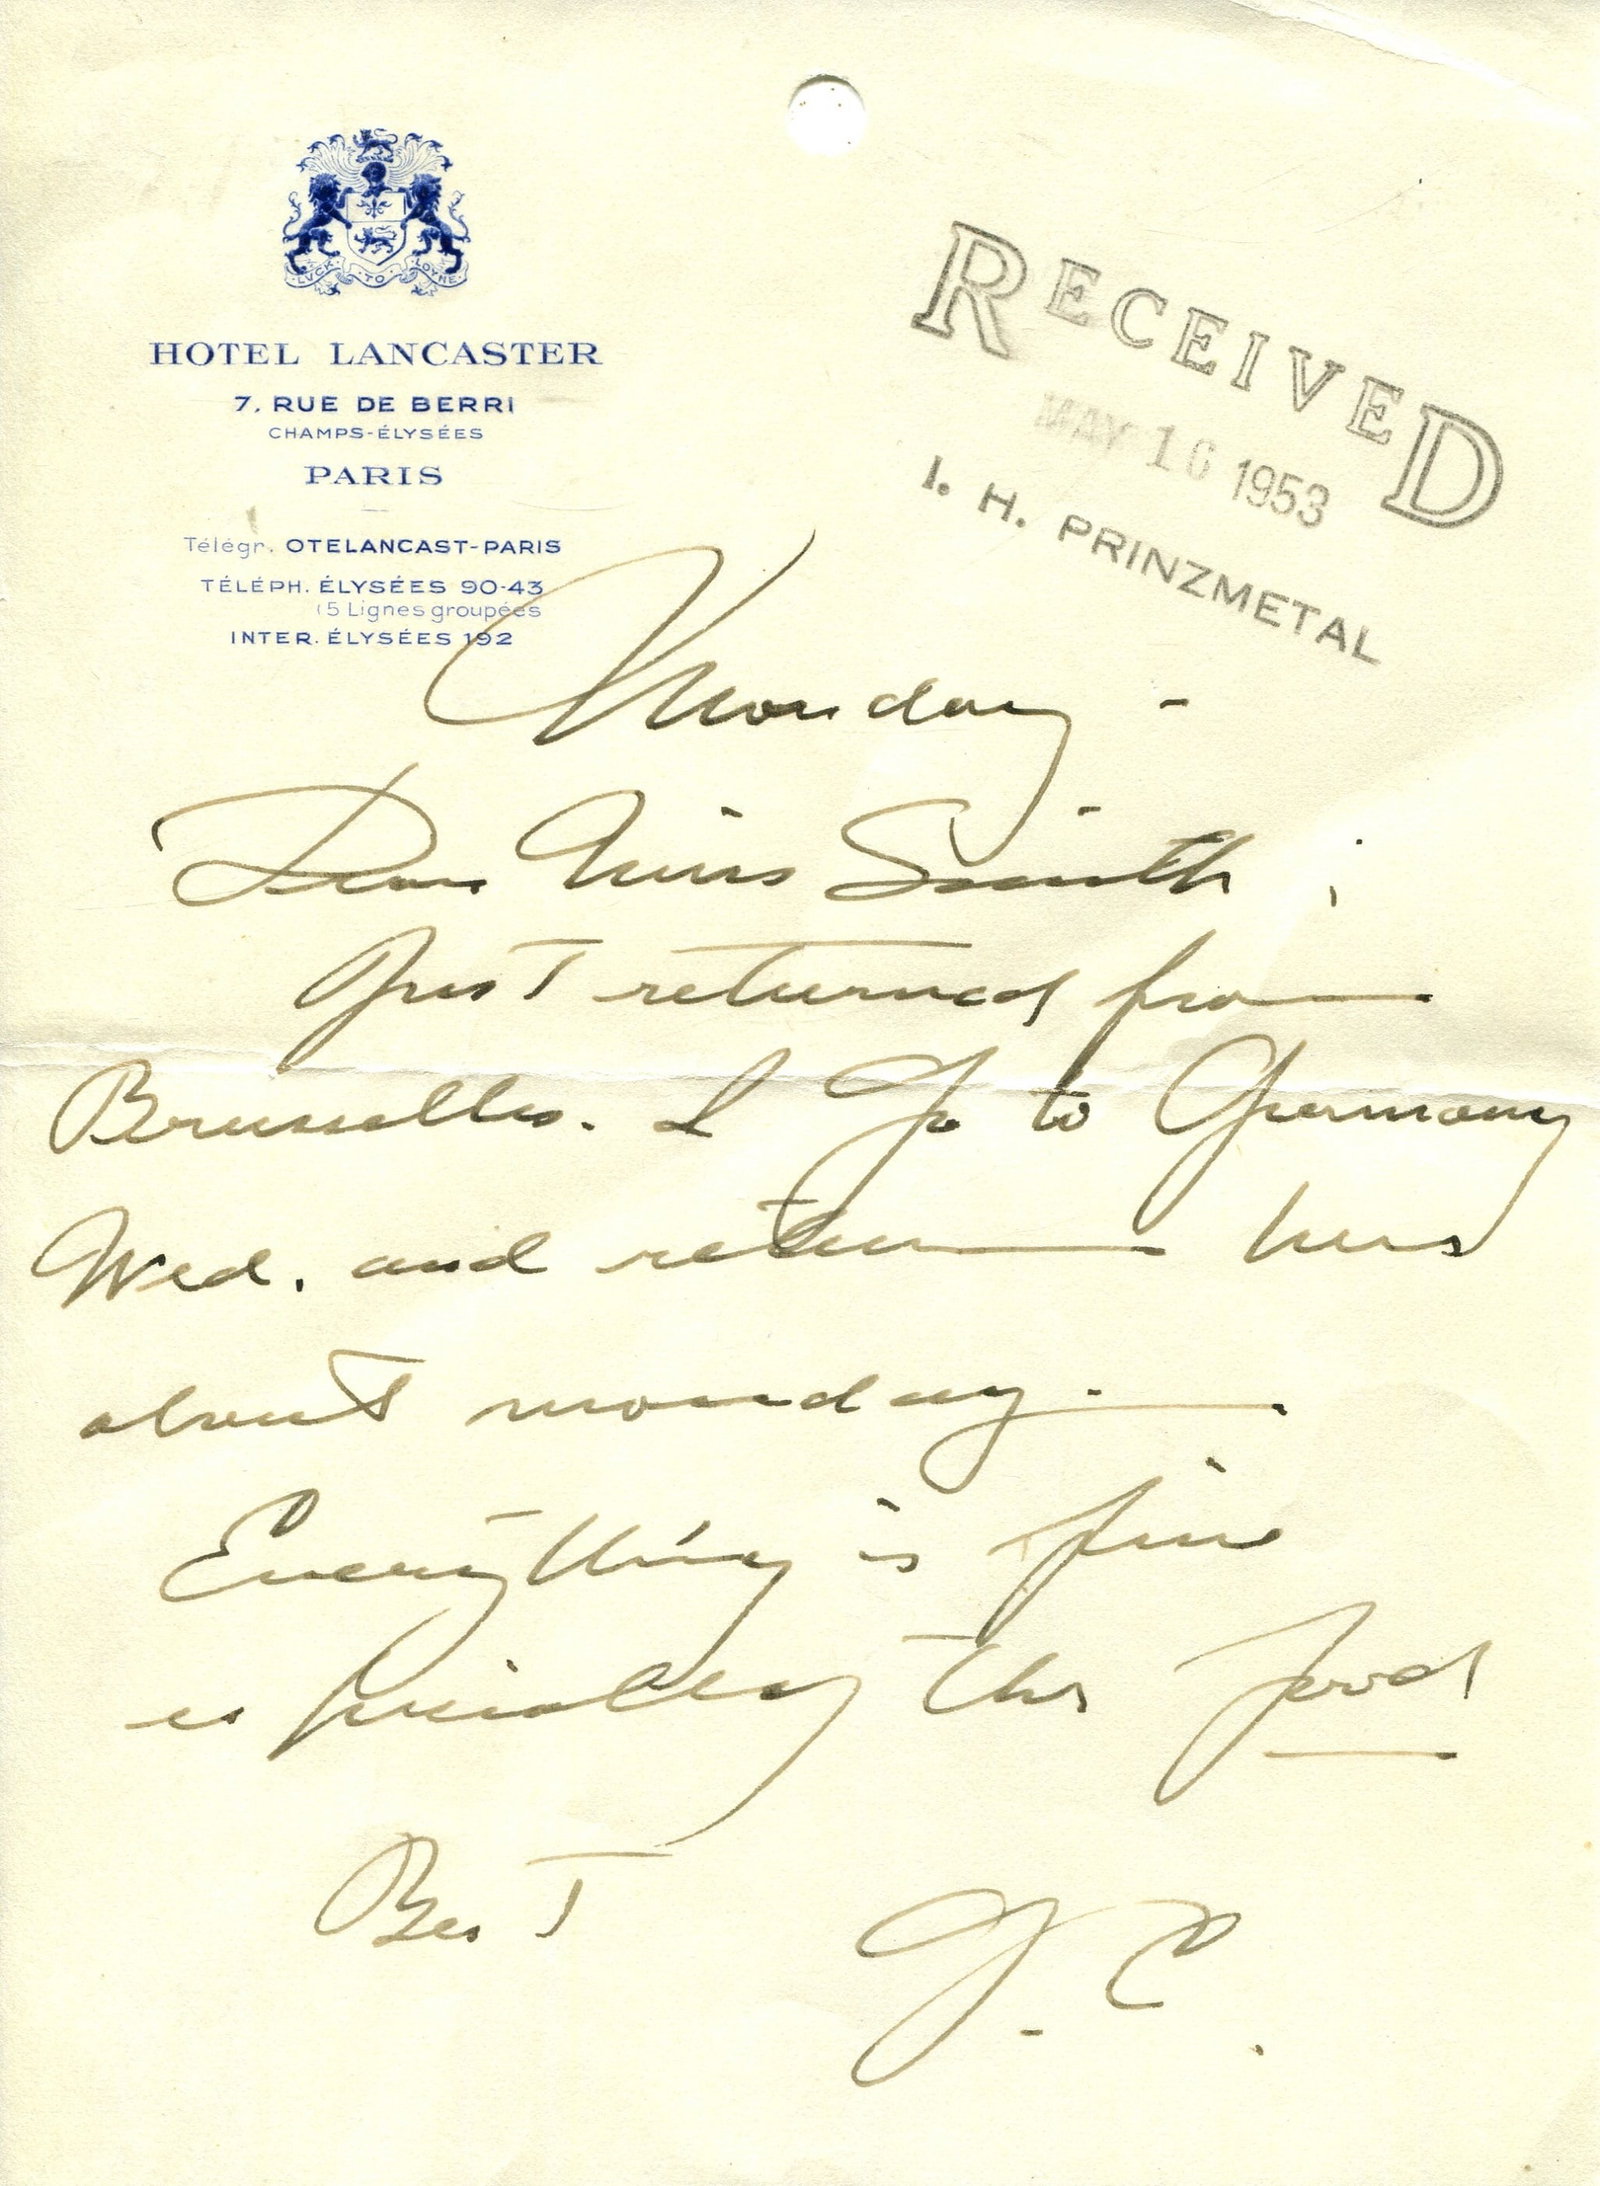 LVCK TO LOYNE
HOTEL LANCASTER
7, RUE DE BERRI
CHAMPS-ÉLYSÉES
PARIS
Télégr. OTELANCAST-PARIS
TÉLÉPH. ÉLYSÉES 90-43
(5 Lignes groupées
INTER. ÉLYSÉES 192
RECEIVED
MAY 16 1953
I. H. PRINZMETAL
Monday -
Dear Miss Smith;
Just returned from
Brusselles. I go to Germany
Wed. and return here
about monday.
Everything is fine
espicially the food
Best
G. C.